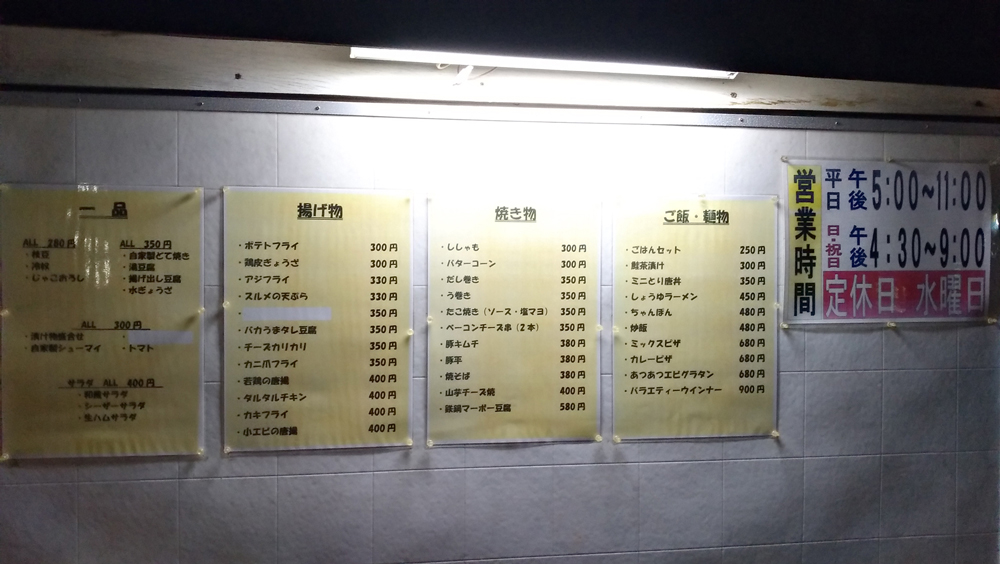 一品
ALL 280円
・枝豆
・冷奴
・じゃこおろし
ALL 350円
・自家製どて焼き
・湯豆腐
・揚げ出し豆腐
・水ぎょうざ
ALL 300円
・漬け物盛合せ
・自家製シューマイ
・トマト
サラダ ALL 400円
・和風サラダ
・シーザーサラダ
・生ハムサラダ
揚げ物
・ポテトフライ 300円
・鶏皮ぎょうざ 300円
・アジフライ 330円
・スルメの天ぷら 330円
・ 350円
・バカうまタレ豆腐 350円
・チーズカリカリ 350円
・カニ爪フライ 350円
・若鶏の唐揚 400円
・タルタルチキン 400円
・カキフライ 400円
・小エビの唐揚 400円
焼き物
・ししゃも 300円
・バターコーン 300円
・だし巻き 350円
・う巻き 350円
・たこ焼き（ソース・塩マヨ） 350円
・ベーコンチーズ串（2本） 350円
・豚キムチ 380円
・豚平 380円
・焼そば 380円
・山芋チーズ焼 400円
・鉄鍋マーボー豆腐 580円
ご飯・麺物
・ごはんセット 250円
・鮭茶漬け 300円
・ミニとり唐丼 350円
・しょうゆラーメン 450円
・ちゃんぽん 480円
・炒飯 480円
・ミックスピザ 680円
・カレーピザ 680円
・あつあつエビグラタン 680円
・バラエティーウインナー 900円
営業時間
平日 午後 5:00~11:00
日・祝日 午後 4:30~9:00
定休日 水曜日